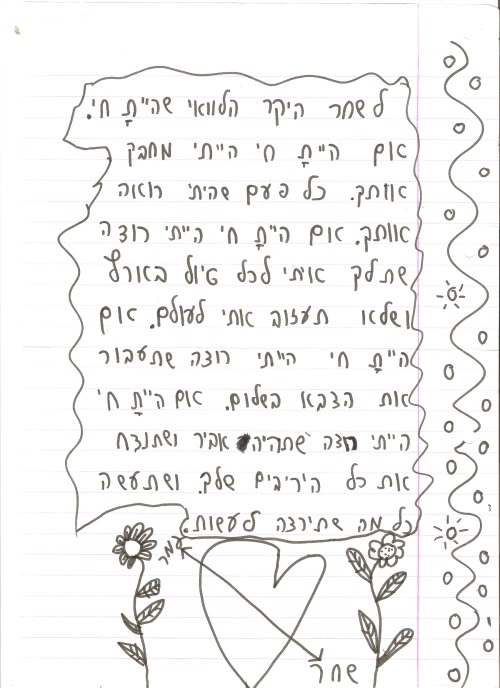 לשחר היקר הלוואי שהייתָ חי.
אום הייתָ חי הייתי מחבק
אותך. כל פעם שהיתי רואה
אוותך. אום הייתָ חי הייתי רוצה
שתלך איתי לכל טיול בארץ
ושלאו תעזוב אותי לעולם. אום
הייתָ חי הייתי רוצה שתעבור
אות הצבא בשלום. אום הייתָ חי
הייתי רוצה שתהיה אביר ושתנצח
אות כל היריבים שלך. ושתעשה
כל מה שתירצה לעשות.
עמר
שחר